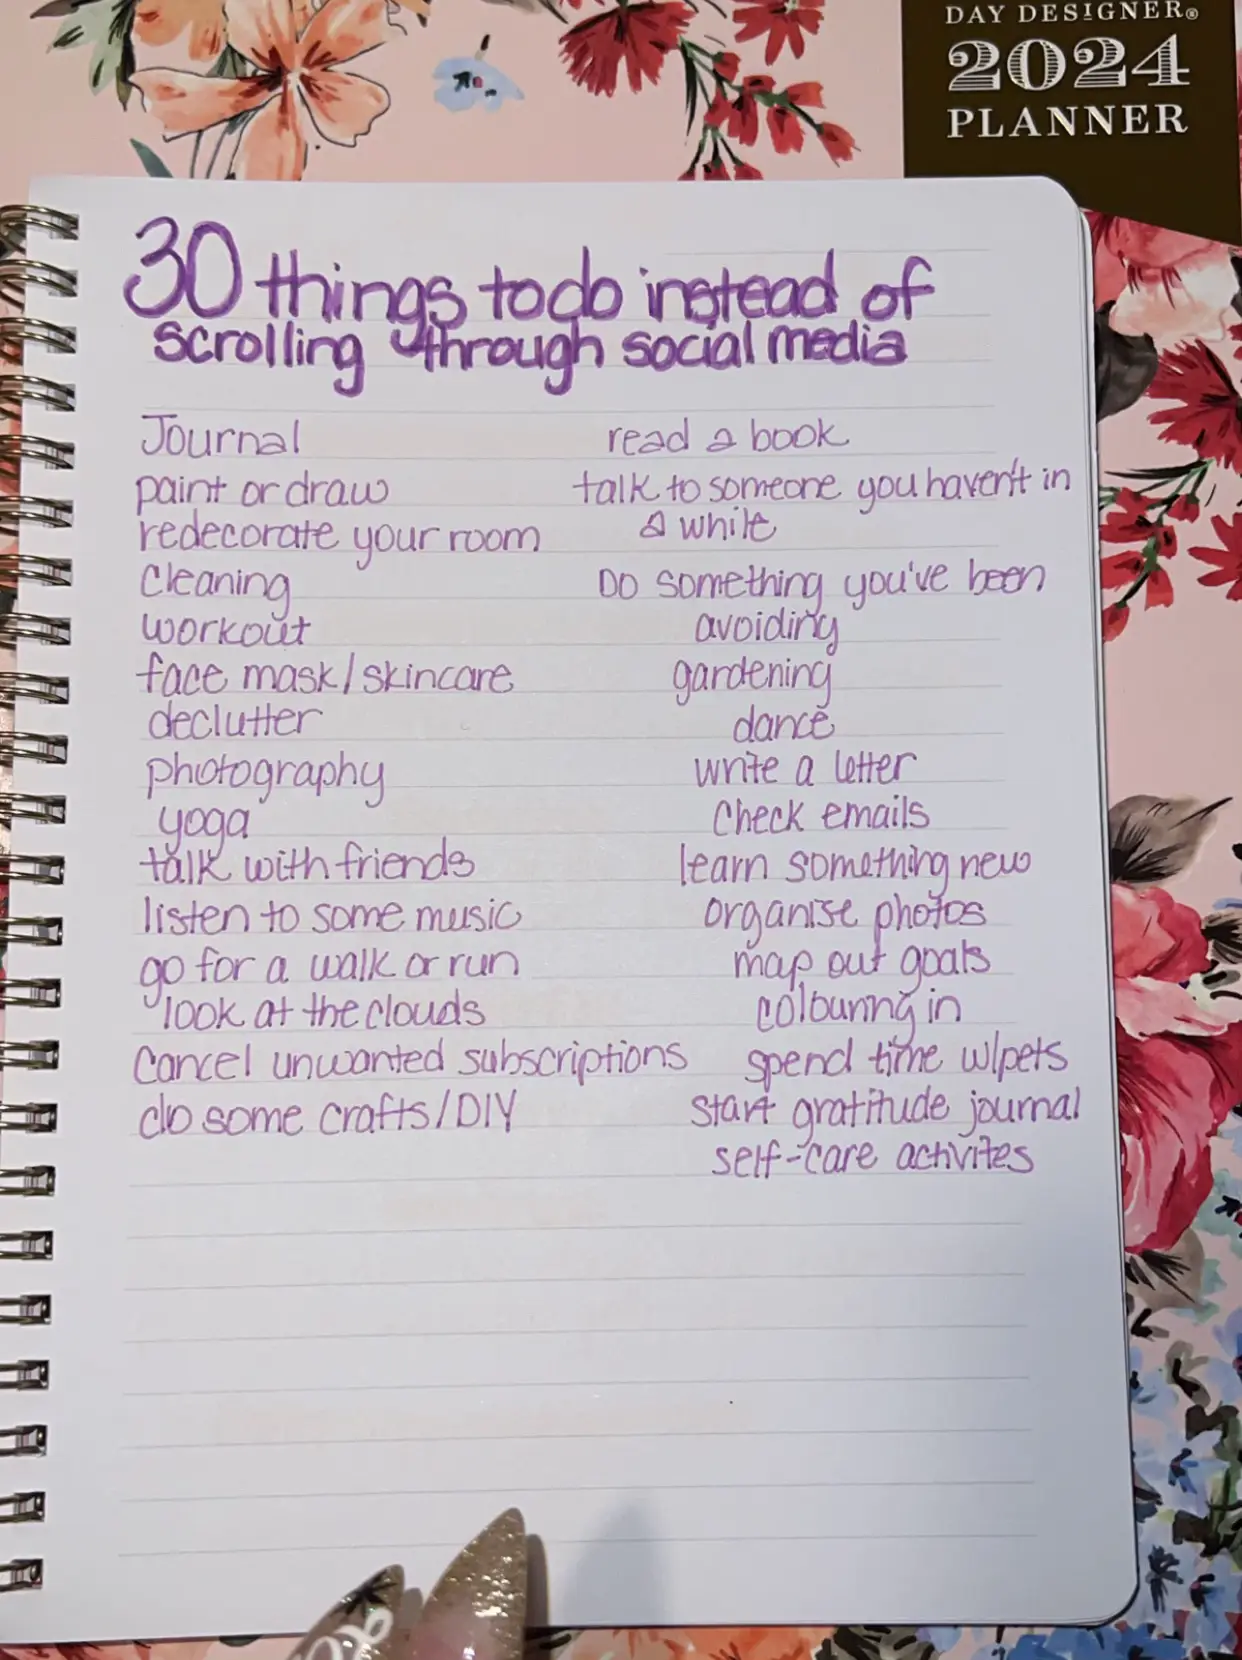 DAY DESIGNER®
2024
PLANNER
30 things to do instead of
scrolling through social media
Journal
paint or draw
redecorate your room
cleaning
workout
face mask/skincare
declutter
photography
yoga
talk with friends
listen to some music
go for a walk or run
look at the clouds
cancel unwanted subscriptions
do some crafts/DIY
read a book
talk to someone you haven't in
a while
Do something you've been
avoiding
gardening
dance
write a letter
Check emails
learn something new
organise photos
map out goals
colouring in
spend time w/pets
start gratitude journal
self-care activites